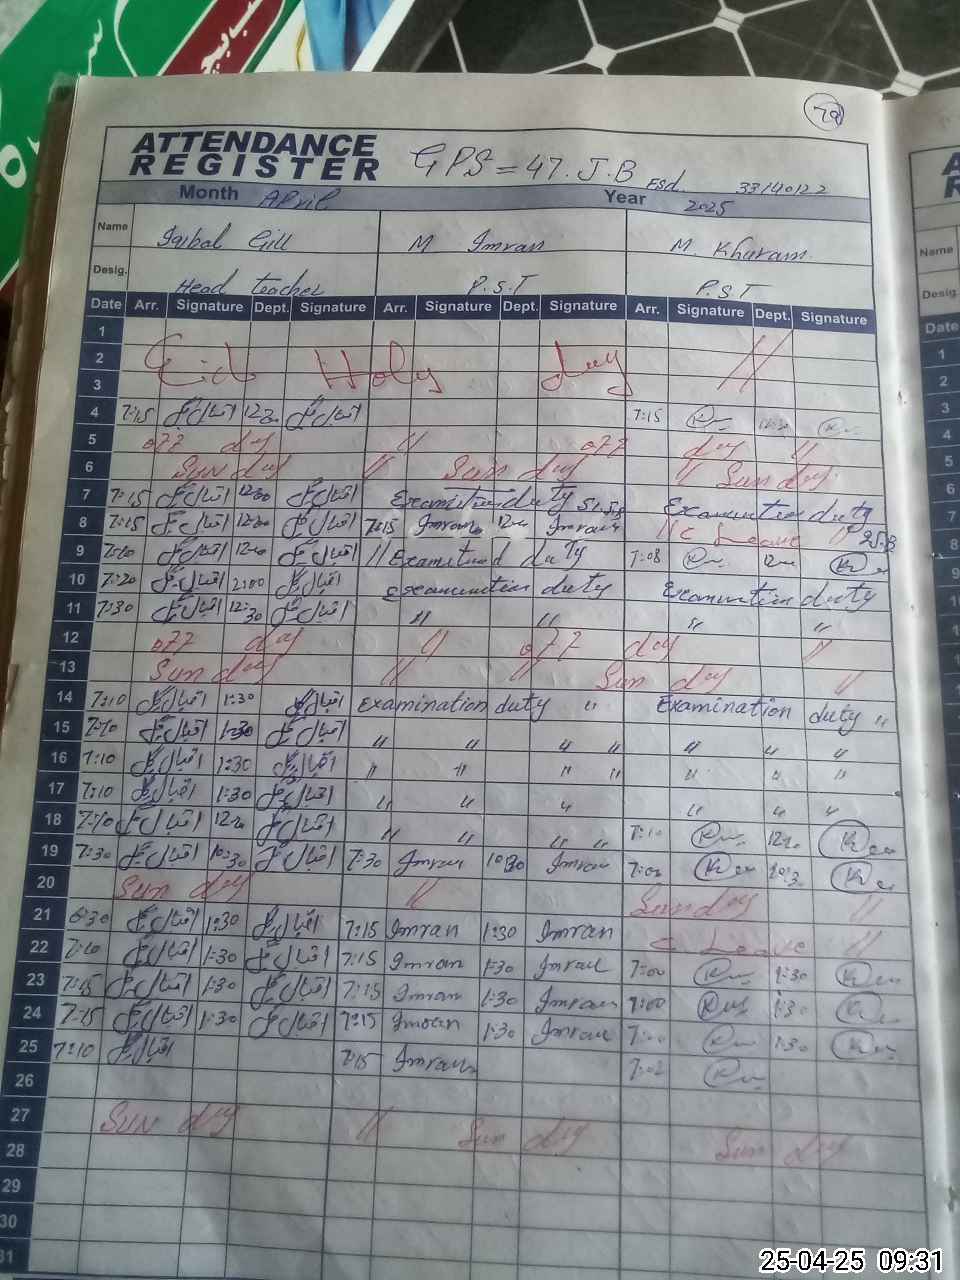 78
ATTENDANCE
REGISTER GPS = 47. J.B Fsd. 33140122
Month April Year 2025
Name Iqibal Gill M Imran M. Khuram.
Desig. Head teacher P.S.T P.S.T
Date Arr. Signature Dept. Signature Arr. Signature Dept. Signature Arr. Signature Dept. Signature
1
2 Eid Holy day //
3
4 7:15 اقبال گل اقبال گل 7:15
5 off day // off day //
6 Sun day // Sun day // Sun day
7 7:15 اقبال گل 12:00 اقبال گل duty Examination duty
8 7:15 اقبال گل اقبال گل 7:15 Imran Imran // C Leave //
9 اقبال گل اقبال گل // duty 7:08
10 7:20 اقبال گل 2:00 اقبال گل examination duty Examination duty
11 7:30 اقبال گل 12:30 اقبال گل " " " "
12 off day // off day //
13 Sun day // // Sun day //
14 7:10 اقبال گل 1:30 اقبال گل Examination duty " Examination duty "
15 7:10 اقبال گل 1:30 اقبال گل " " " " " " "
16 7:10 اقبال گل 1:30 اقبال گل " " " " " " "
17 7:10 اقبال گل 1:30 اقبال گل " " " " " "
18 7:10 اقبال گل اقبال گل " " " " 7:10
19 7:30 اقبال گل 10:30 اقبال گل 7:30 Imran 10:30 Imran
20 Sun day // Sunday //
21 6:30 اقبال گل 1:30 اقبال گل 7:15 Imran 1:30 Imran C Leave //
22 7:10 اقبال گل 1:30 اقبال گل 7:15 Imran 1:30 Imran 7:00 1:30
23 7:15 اقبال گل 1:30 اقبال گل 7:15 Imran 1:30 Imran 7:00 1:30
24 7:15 اقبال گل 1:30 اقبال گل 7:15 Imran 1:30 Imran 7:00 1:30
25 7:10 اقبال گل 7:15 Imran 7:02
26
27 Sun day // Sun day Sun day
28
29
30
31
Name
Desig.
Date
1
2
3
4
5
6
7
8
9
25-04-25 09:31